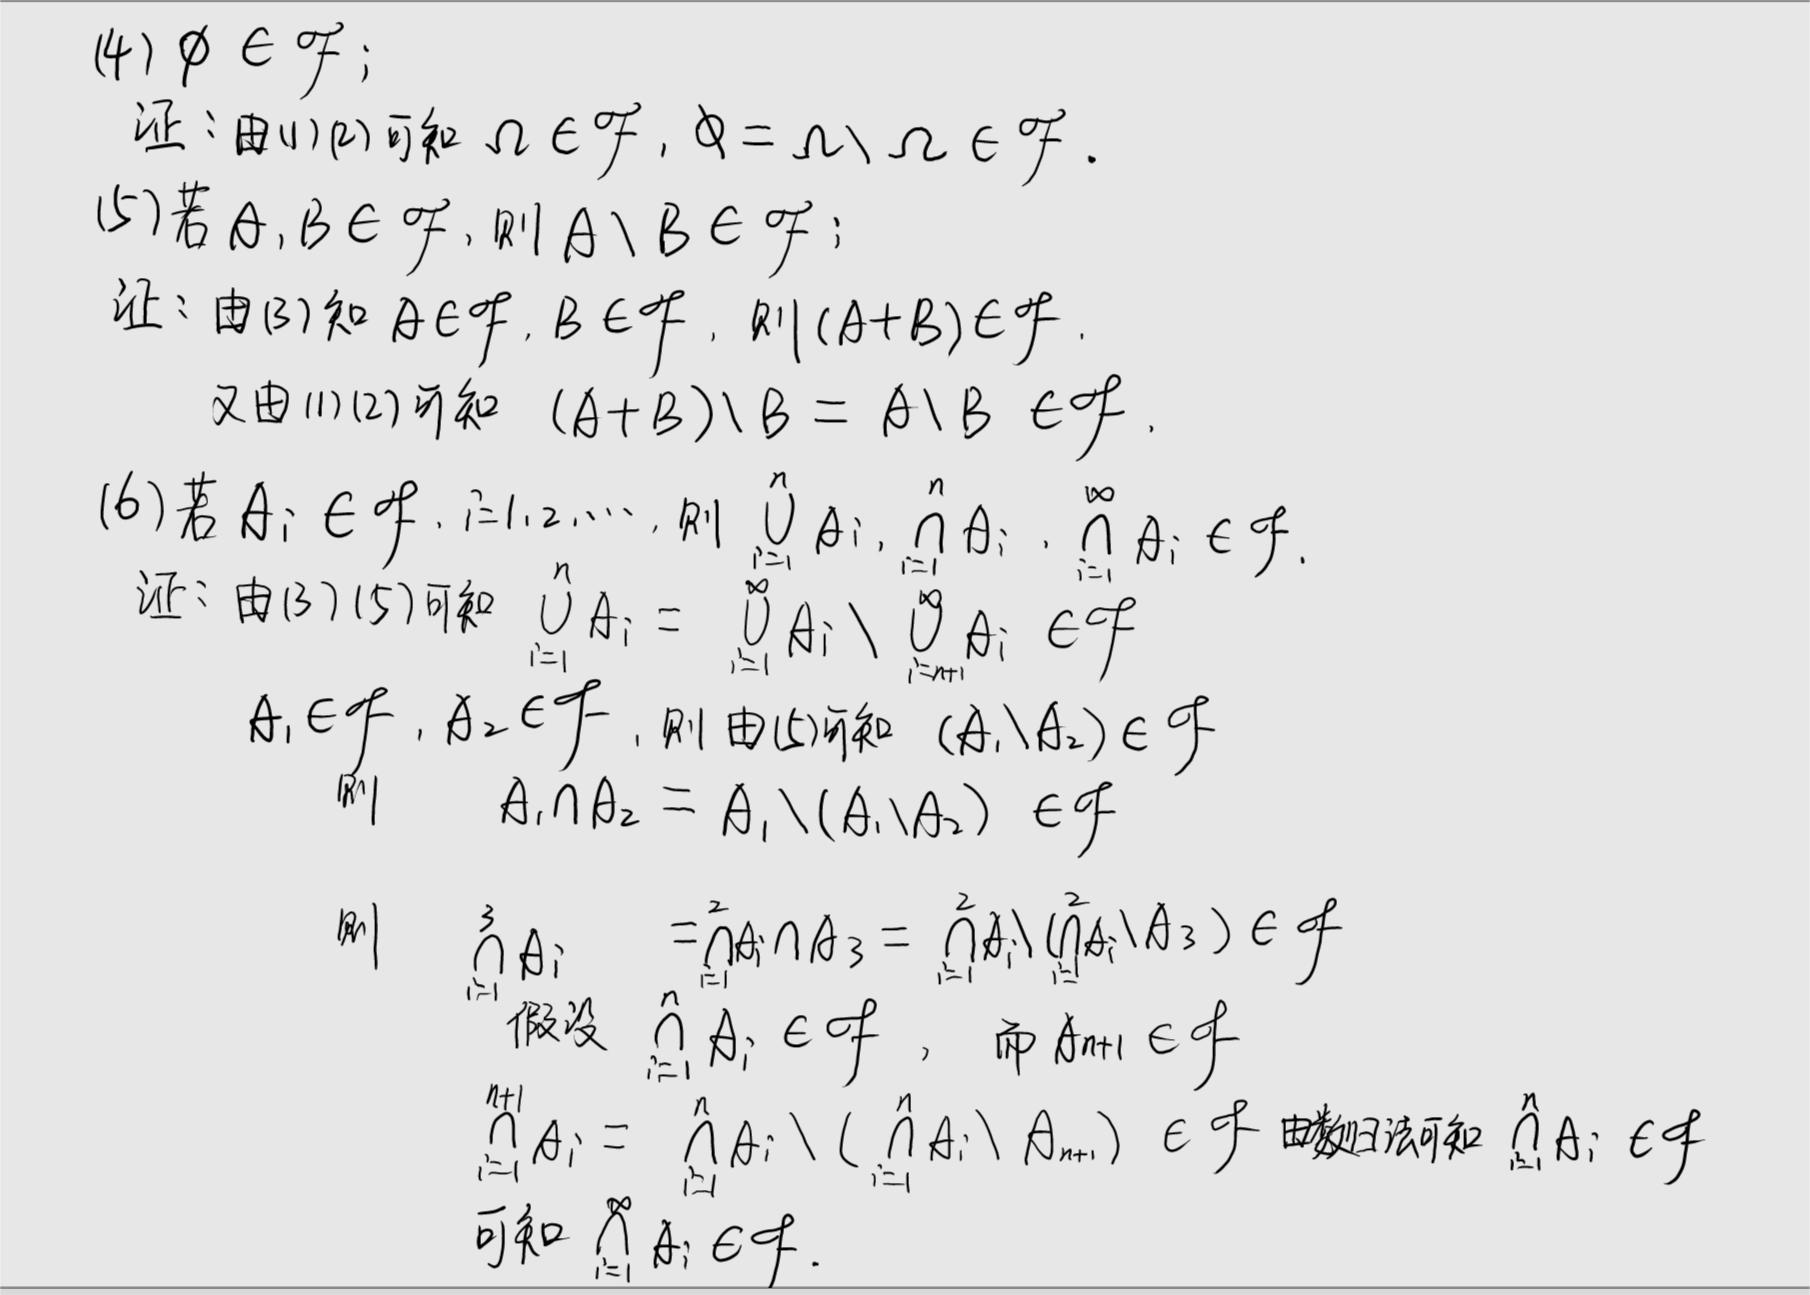 (4) ∅ ∈ ℱ;
证:由(1)(2)可知 Ω ∈ ℱ, ∅ = Ω \ Ω ∈ ℱ.
(5)若 A, B ∈ ℱ, 则 A \ B ∈ ℱ;
证:由(3)知 A ∈ ℱ, B ∈ ℱ, 则 (A+B) ∈ ℱ.
又由(1)(2)可知 (A+B) \ B = A \ B ∈ ℱ.
(6)若 A_i ∈ ℱ, i=1,2,…, 则 ⋃_{i=1}^{n} A_i, ⋂_{i=1}^{n} A_i, ⋂_{i=1}^{∞} A_i ∈ ℱ.
证:由(3)(5)可知 ⋃_{i=1}^{n} A_i = ⋃_{i=1}^{∞} A_i \ ⋃_{i=n+1}^{∞} A_i ∈ ℱ
A_1 ∈ ℱ, A_2 ∈ ℱ, 则由(5)可知 (A_1 \ A_2) ∈ ℱ
则 A_1 ∩ A_2 = A_1 \ (A_1 \ A_2) ∈ ℱ
则 ⋂_{i=1}^{3} A_i = ⋂_{i=1}^{2} A_i ∩ A_3 = ⋂_{i=1}^{2} A_i \ (⋂_{i=1}^{2} A_i \ A_3) ∈ ℱ
假设 ⋂_{i=1}^{n} A_i ∈ ℱ, 而 A_{n+1} ∈ ℱ
⋂_{i=1}^{n+1} A_i = ⋂_{i=1}^{n} A_i \ (⋂_{i=1}^{n} A_i \ A_{n+1}) ∈ ℱ 由数归法可知 ⋂_{i=1}^{n} A_i ∈ ℱ
可知 ⋂_{i=1}^{∞} A_i ∈ ℱ.